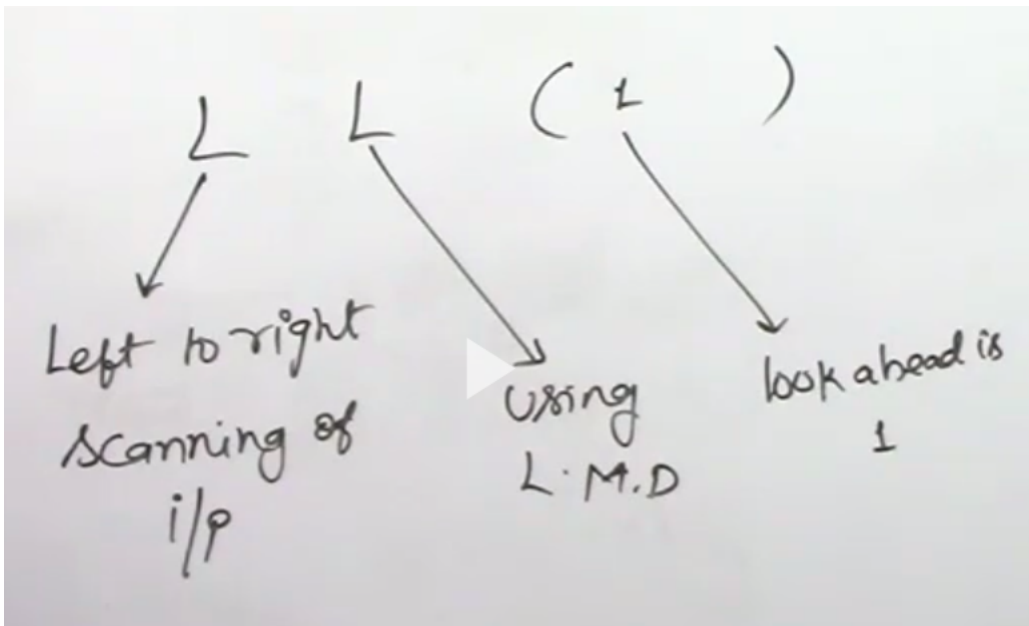 L L ( 1 )
Left to right
scanning of
i/p
using
L.M.D
look ahead is
1